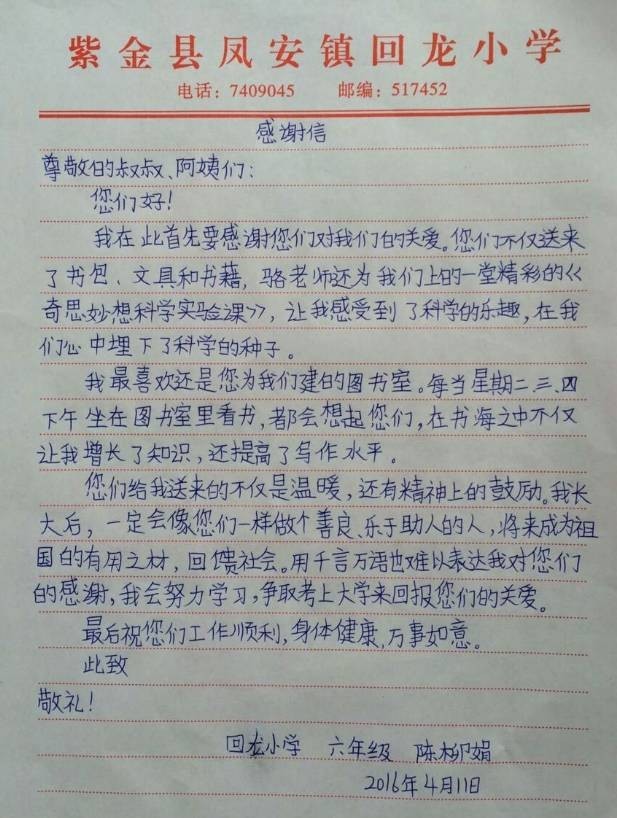 紫金县凤安镇回龙小学
电话：7409045 邮编：517452
感谢信
尊敬的叔叔、阿姨们：
您们好！
我在此首先要感谢您们对我们的关爱。您们不仅送来
了书包、文具和书藉，骆老师还为我们上的一堂精彩的《
奇思妙想科学实验课》，让我感受到了科学的乐趣，在我
们心中埋下了科学的种子。
我最喜欢还是您为我们建的图书室。每当星期二、三、四
下午坐在图书室里看书，都会想起您们，在书海之中不仅
让我增长了知识，还提高了写作水平。
您们给我送来的不仅是温暖，还有精神上的鼓励。我长
大后，一定会像您们一样做个善良、乐于助人的人，将来成为祖
国的有用之材，回馈社会。用千言万语也难以表达我对您们
的感谢，我会努力学习，争取考上大学来回报您们的关爱。
最后祝您们工作顺利，身体健康，万事如意。
此致
敬礼！
回龙小学 六年级 陈柳娟
2016年4月11日